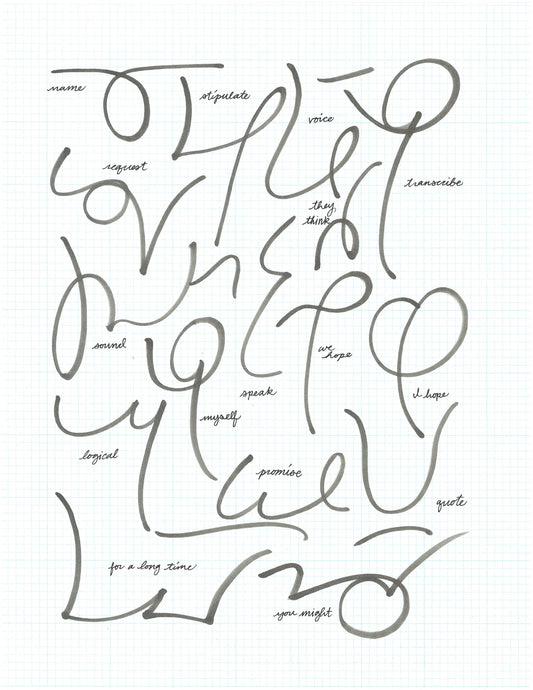 name
stipulate
voice
request
transcribe
they,
think
sound
we
hope
speak
I hope
myself
logical
promise
quote
for a long time
you might